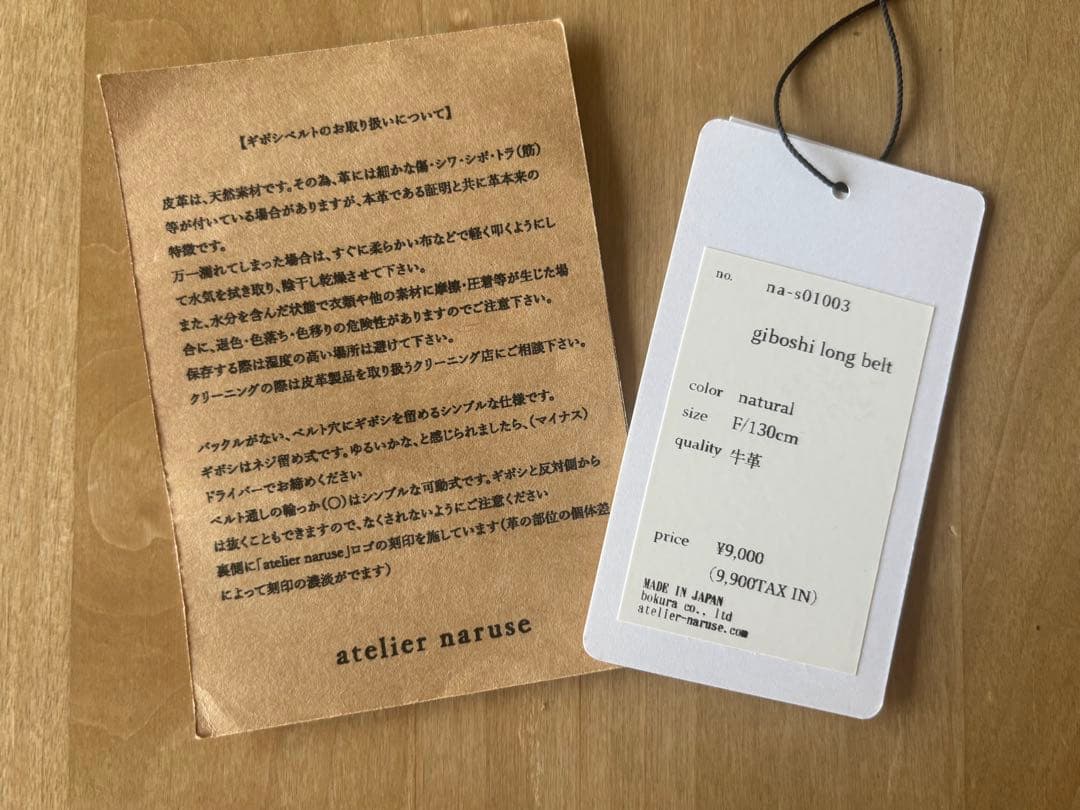 【ギボシベルトのお取り扱いについて】
皮革は、天然素材です。その為、革には細かな傷・シワ・シボ・トラ(筋)
等が付いている場合がありますが、本革である証明と共に革本来の
特徴です。
万一濡れてしまった場合は、すぐに柔らかい布などで軽く叩くようにし
て水気を拭き取り、陰干し乾燥させて下さい。
また、水分を含んだ状態で衣類や他の素材に摩擦・圧着等が生じた場
合に、退色・色落ち・色移りの危険性がありますのでご注意下さい。
保存する際は湿度の高い場所は避けて下さい。
クリーニングの際は皮革製品を取り扱うクリーニング店にご相談下さい。
バックルがない、ベルト穴にギボシを留めるシンプルな仕様です。
ギボシはネジ留め式です。ゆるいかな、と感じられましたら、(マイナス)
ドライバーでお締めください
ベルト通しの輪っか(〇)はシンプルな可動式です。ギボシと反対側から
は抜くこともできますので、なくされないようにご注意ください
裏側に「atelier naruse」ロゴの刻印を施しています(革の部位の個体差
によって刻印の濃淡がでます)
atelier naruse
no. na-s01003
giboshi long belt
color natural
size F/130cm
quality 牛革
price ¥9,000
(9,900TAX IN)
MADE IN JAPAN
bokura co., ltd
atelier-naruse.com